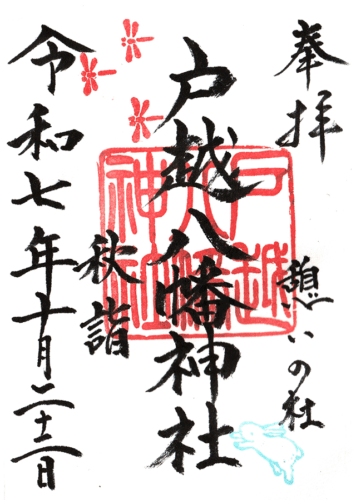 奉拝
憩いの社
戸越八幡神社
戸越
八幡
神社
秋詣
令和七年十月二十二日